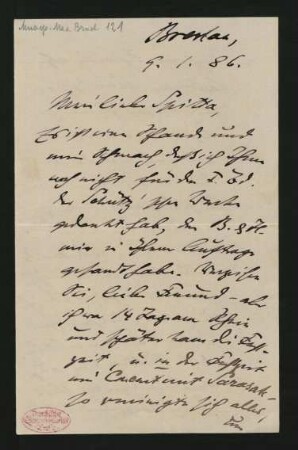 Mus. ep. Max Bruch 121
Breslau,
9. 1. 86.
Mein lieber Spitta,
Es ist eine Schande und
eine Schmach daß ich Ihnen
noch nicht für den I. Bd.
der Schütz'schen Werke
gedankt habe, den B. & H.
mir in Ihrem Auftrage
gesandt haben. Verzeihen
Sie, lieber Freund — aber
14 Tagen
und später kam die Fest-
zeit, u. in der Festzeit
ein Concert mit Sarasate
so vereinigte sich alles,
um